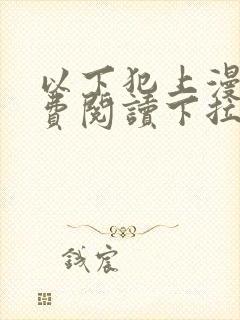 以下犯上漫
費閱讀下拉
鋮宸